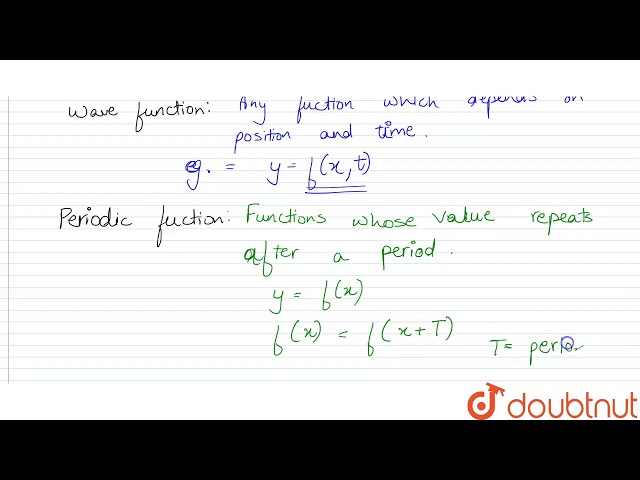 Wave function: Any fuction which depends on
position and time.
eg. = y = f(x, t)
Periodic fuction: Functions whose value repeats
after a period.
y = f(x)
f(x) = f(x+T)
T = perio
doubtnut